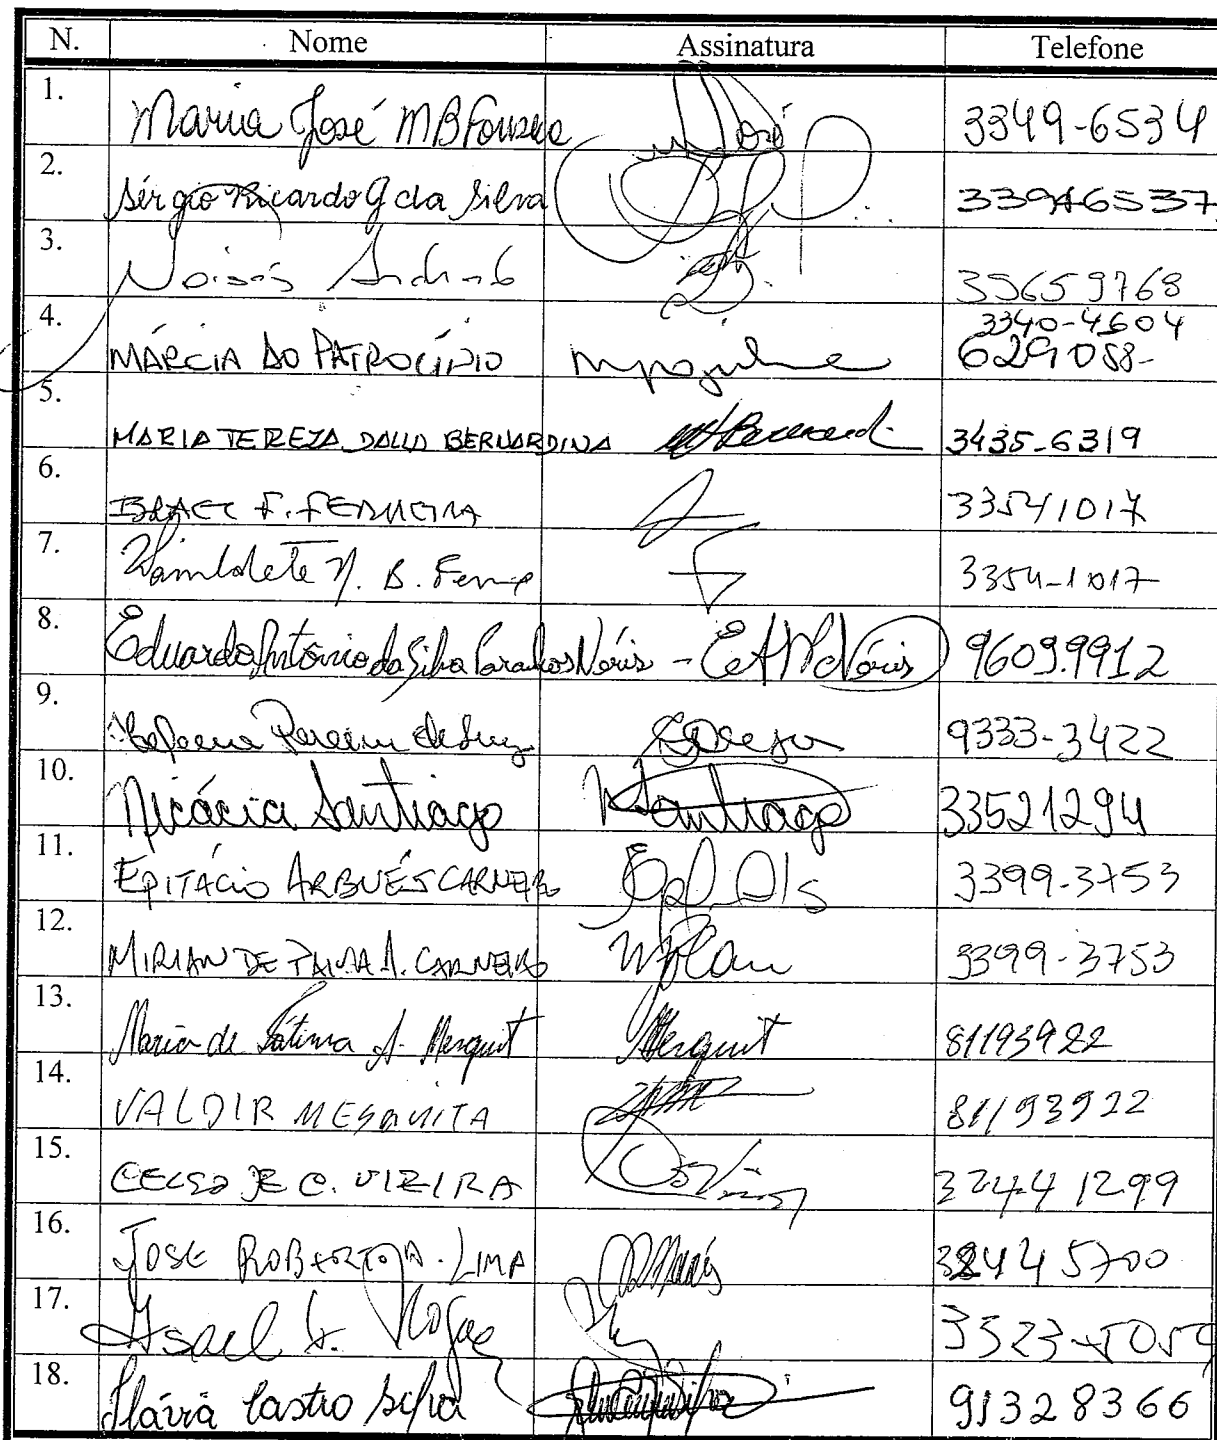 N. Nome Assinatura Telefone
1. Maria José MB Fonseca José 3349-6534
2. Sérgio Ricardo G da Silva 33946537
3. 35659768
4. MÁRCIA DO PATROCÍNIO 3340-4604
629 088-
5. MARIA TEREZA DALLA BERNARDINA 3435-6319
6. F. FERREIRA 33541017
7. B. 3354-1017
8. Eduardo Antônio da Silva Paranhos Néris - 9609.9912
9. Pereira de 9333-3422
10. Nicácia Santiago Santiago 33521294
11. EPITÁCIO ARBUÉS CARNEIRO 3399-3753
12. MIRIAN DE PAIVA A. CARNEIRO 3399-3753
13. Maria de Fátima A. Mesquit Mesquit 81193922
14. VALDIR MESQUITA 81193922
15. CELSO DE C. VIEIRA 32441299
16. JOSE ROBERTO A. LIMA 32445700
17. 3323-5059
18. Flávia Castro Silva 91328366